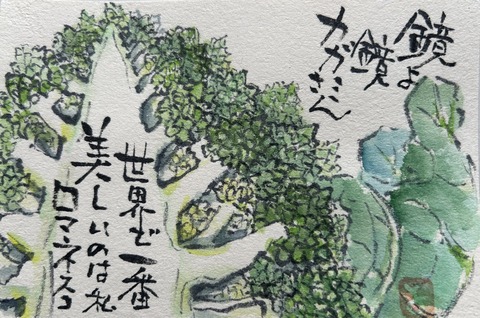 鏡よ
鏡
カガミさん
世界で一番
美しいのは私
ロマネスコ